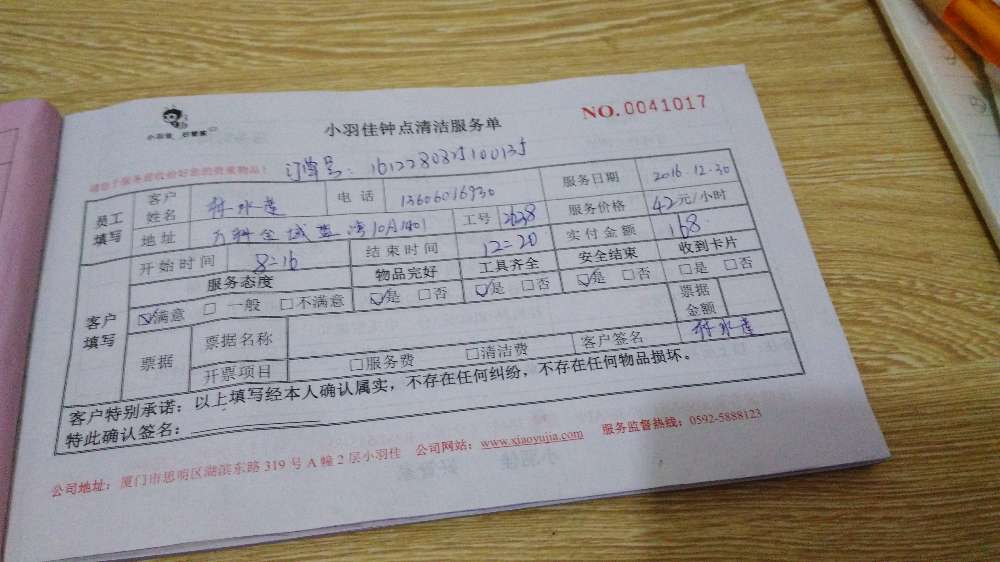 小羽佳 好管家
小羽佳钟点清洁服务单
NO.0041017
请您于服务前收拾好您的贵重物品！
订单号：
员工填写
客户姓名
电话 13606016930
服务日期 2016.12.30
地址 万科金域蓝湾10月1401
工号 2638
服务价格 42元/小时
开始时间 8=16
结束时间 12=20
实付金额 168
客户填写
服务态度 物品完好 工具齐全 安全结束 收到卡片
☑满意 □ 一般 □不满意 ☑是 □否 ☑是 □否 ☑是 □否 □是 □否
票据 票据名称 票据金额
开票项目 □服务费 □清洁费 客户签名
客户特别承诺：以上填写经本人确认属实，不存在任何纠纷，不存在任何物品损坏。
特此确认签名：
公司地址：厦门市思明区湖滨东路 319 号 A 幢 2 层小羽佳 公司网站：www.xiaoyujia.com 服务监督热线：0592-5888123